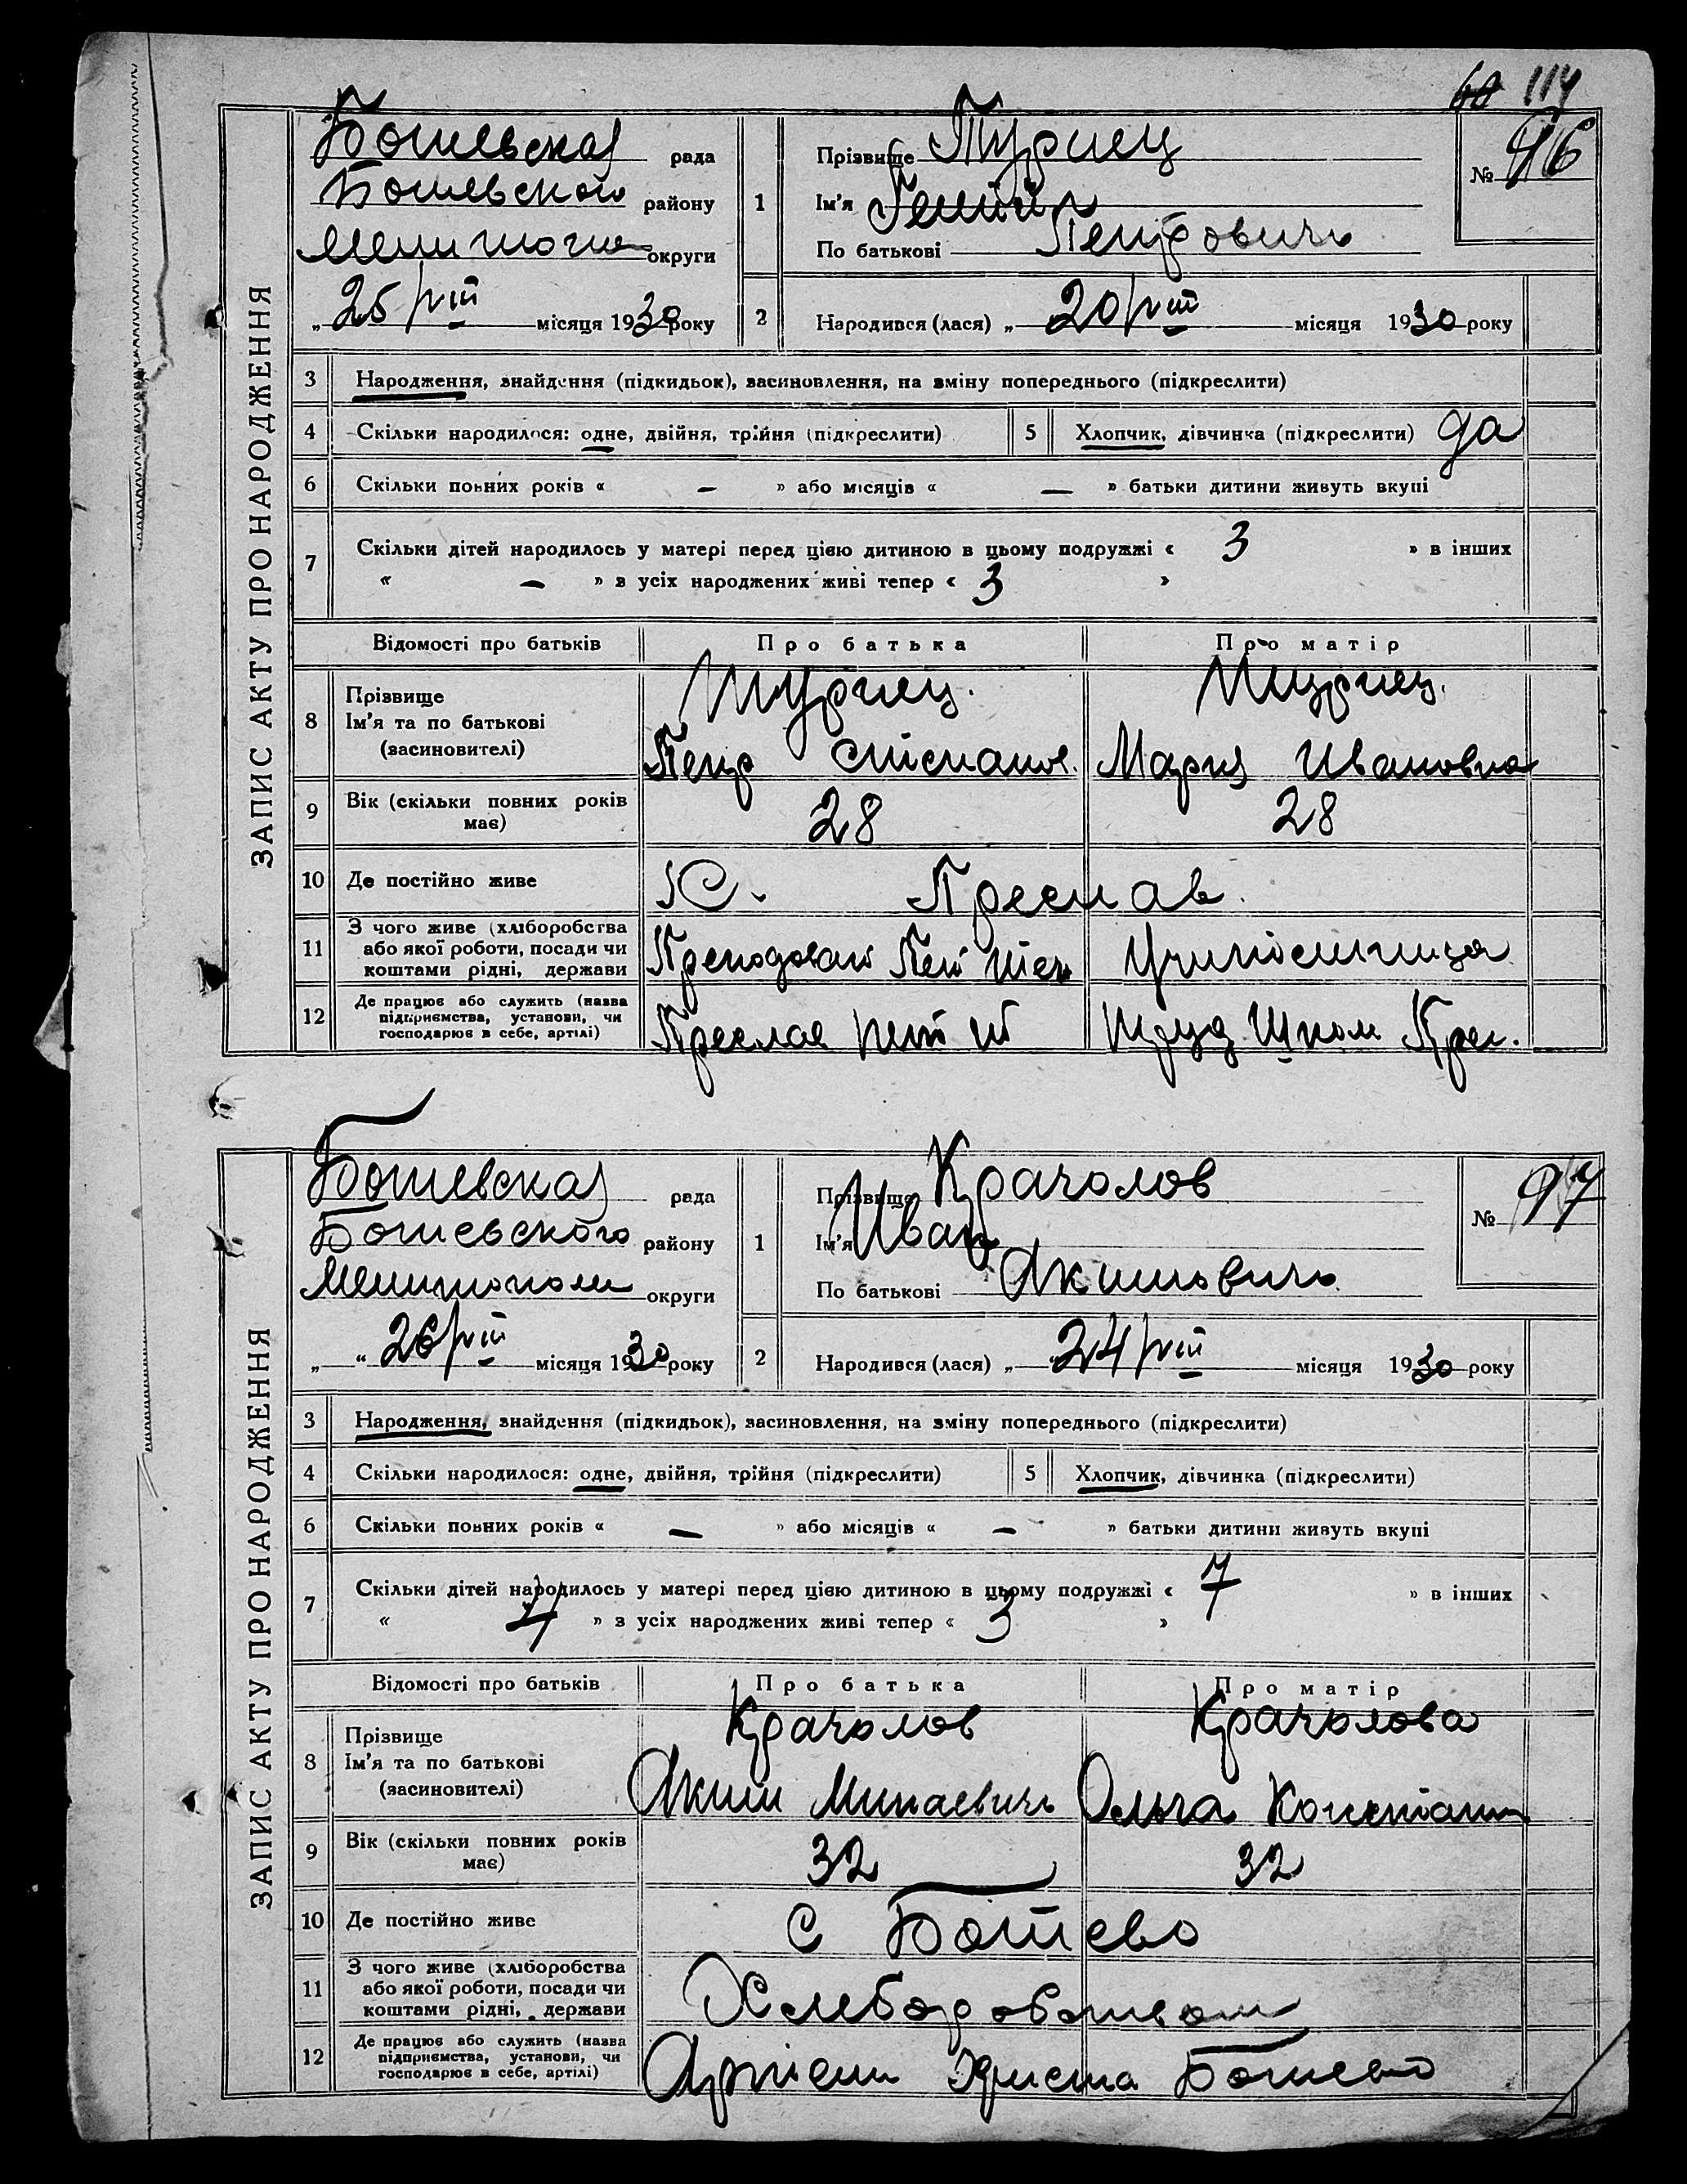 114
ЗАПИС АКТУ ПРО НАРОДЖЕННЯ
Ботевская рада
Ботевского району
округи
„ 25/VIII місяця 1930 року
1 Прізвище Турпец
Ім'я
По батькові Петровичъ
№ 96
2 Народився (лася) „ 20/VIII місяця 1930 року
3 Народження, знайдення (підкидьок), засиновлення, на зміну попереднього (підкреслити)
4 Скільки народилося: одне, двійня, трійня (підкреслити)
5 Хлопчик, дівчинка (підкреслити) да
6 Скільки повних років « – » або місяців « – » батьки дитини живуть вкупі
7 Скільки дітей народилось у матері перед цією дитиною в цьому подружжі « 3 » в інших
« – » з усіх народжених живі тепер « 3 »
Відомості про батьків Про батька Про матір
8 Прізвище
Ім'я та по батькові
(засиновителі)
Турпец. Турпец.
Петр Степанов. Мария Ивановна
9 Вік (скільки повних років має) 28 28
10 Де постійно живе С. Преслав.
11 З чого живе (хліборобства або якої роботи, посади чи коштами рідні, держави Преподоват Учительница
12 Де працює або служить (назва підприємства, установи, чи господарює в себе, артілі) Преслав Труд Школ Прес.
ЗАПИС АКТУ ПРО НАРОДЖЕННЯ
Ботевская рада
Ботевского району
Мелитополи округи
„ “ 26/VIII місяця 1930 року
1 Прізвище Крачолов
Ім'я Иван
По батькові Якимовичъ
№ 97
2 Народився (лася) „ 24/VIII місяця 1930 року
3 Народження, знайдення (підкидьок), засиновлення, на зміну попереднього (підкреслити)
4 Скільки народилося: одне, двійня, трійня (підкреслити)
5 Хлопчик, дівчинка (підкреслити)
6 Скільки повних років « – » або місяців « – » батьки дитини живуть вкупі
7 Скільки дітей народилось у матері перед цією дитиною в цьому подружжі « 7 » в інших
« 4 » з усіх народжених живі тепер « 3 »
Відомості про батьків Про батька Про матір
8 Прізвище
Ім'я та по батькові
(засиновителі)
Крачолов Крачолова
Яким Минаевичъ Ольга Констант
9 Вік (скільки повних років має) 32 32
10 Де постійно живе С Ботево
11 З чого живе (хліборобства або якої роботи, посади чи коштами рідні, держави Хлеборобством
12 Де працює або служить (назва підприємства, установи, чи господарює в себе, артілі) Артели Христа Ботево